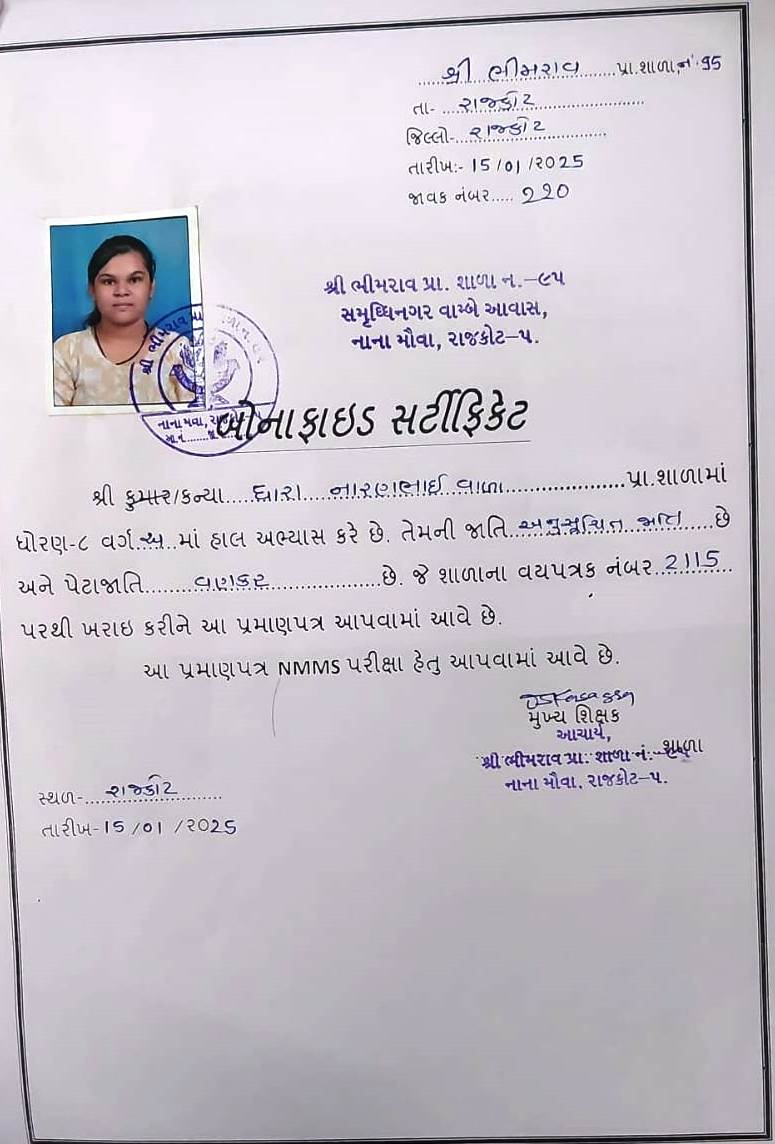 શ્રી ભીમરાવ પ્રા.શાળા,નં.95
તા- રાજકોટ
જિલ્લો- રાજકોટ
તારીખ:- 15/01/2025
જાવક નંબર..... 220
શ્રી ભીમરાવ પ્રા. શાળા ન.–૯૫
સમૃધ્ધિનગર વામ્બે આવાસ,
નાના મૌવા, રાજકોટ–૫.
બોનાફાઇડ સર્ટીફિકેટ
શ્રી કુમાર/કન્યા.... ધારા નારણભાઈ વાળા ....પ્રા.શાળામાં
ધોરણ-૮ વર્ગ અ માં હાલ અભ્યાસ કરે છે. તેમની જાતિ અનુસૂચિત જાતિ છે
અને પેટાજાતિ વણકર છે. જે શાળાના વયપત્રક નંબર 2115
પરથી ખરાઇ કરીને આ પ્રમાણપત્ર આપવામાં આવે છે.
આ પ્રમાણપત્ર NMMS પરીક્ષા હેતુ આપવામાં આવે છે.
મુખ્ય શિક્ષક
આચાર્ય,
શ્રી ભીમરાવ પ્રા. શાળા નં. શાળા
નાના મૌવા. રાજકોટ–૫.
સ્થળ- રાજકોટ
તારીખ-15/01/2025